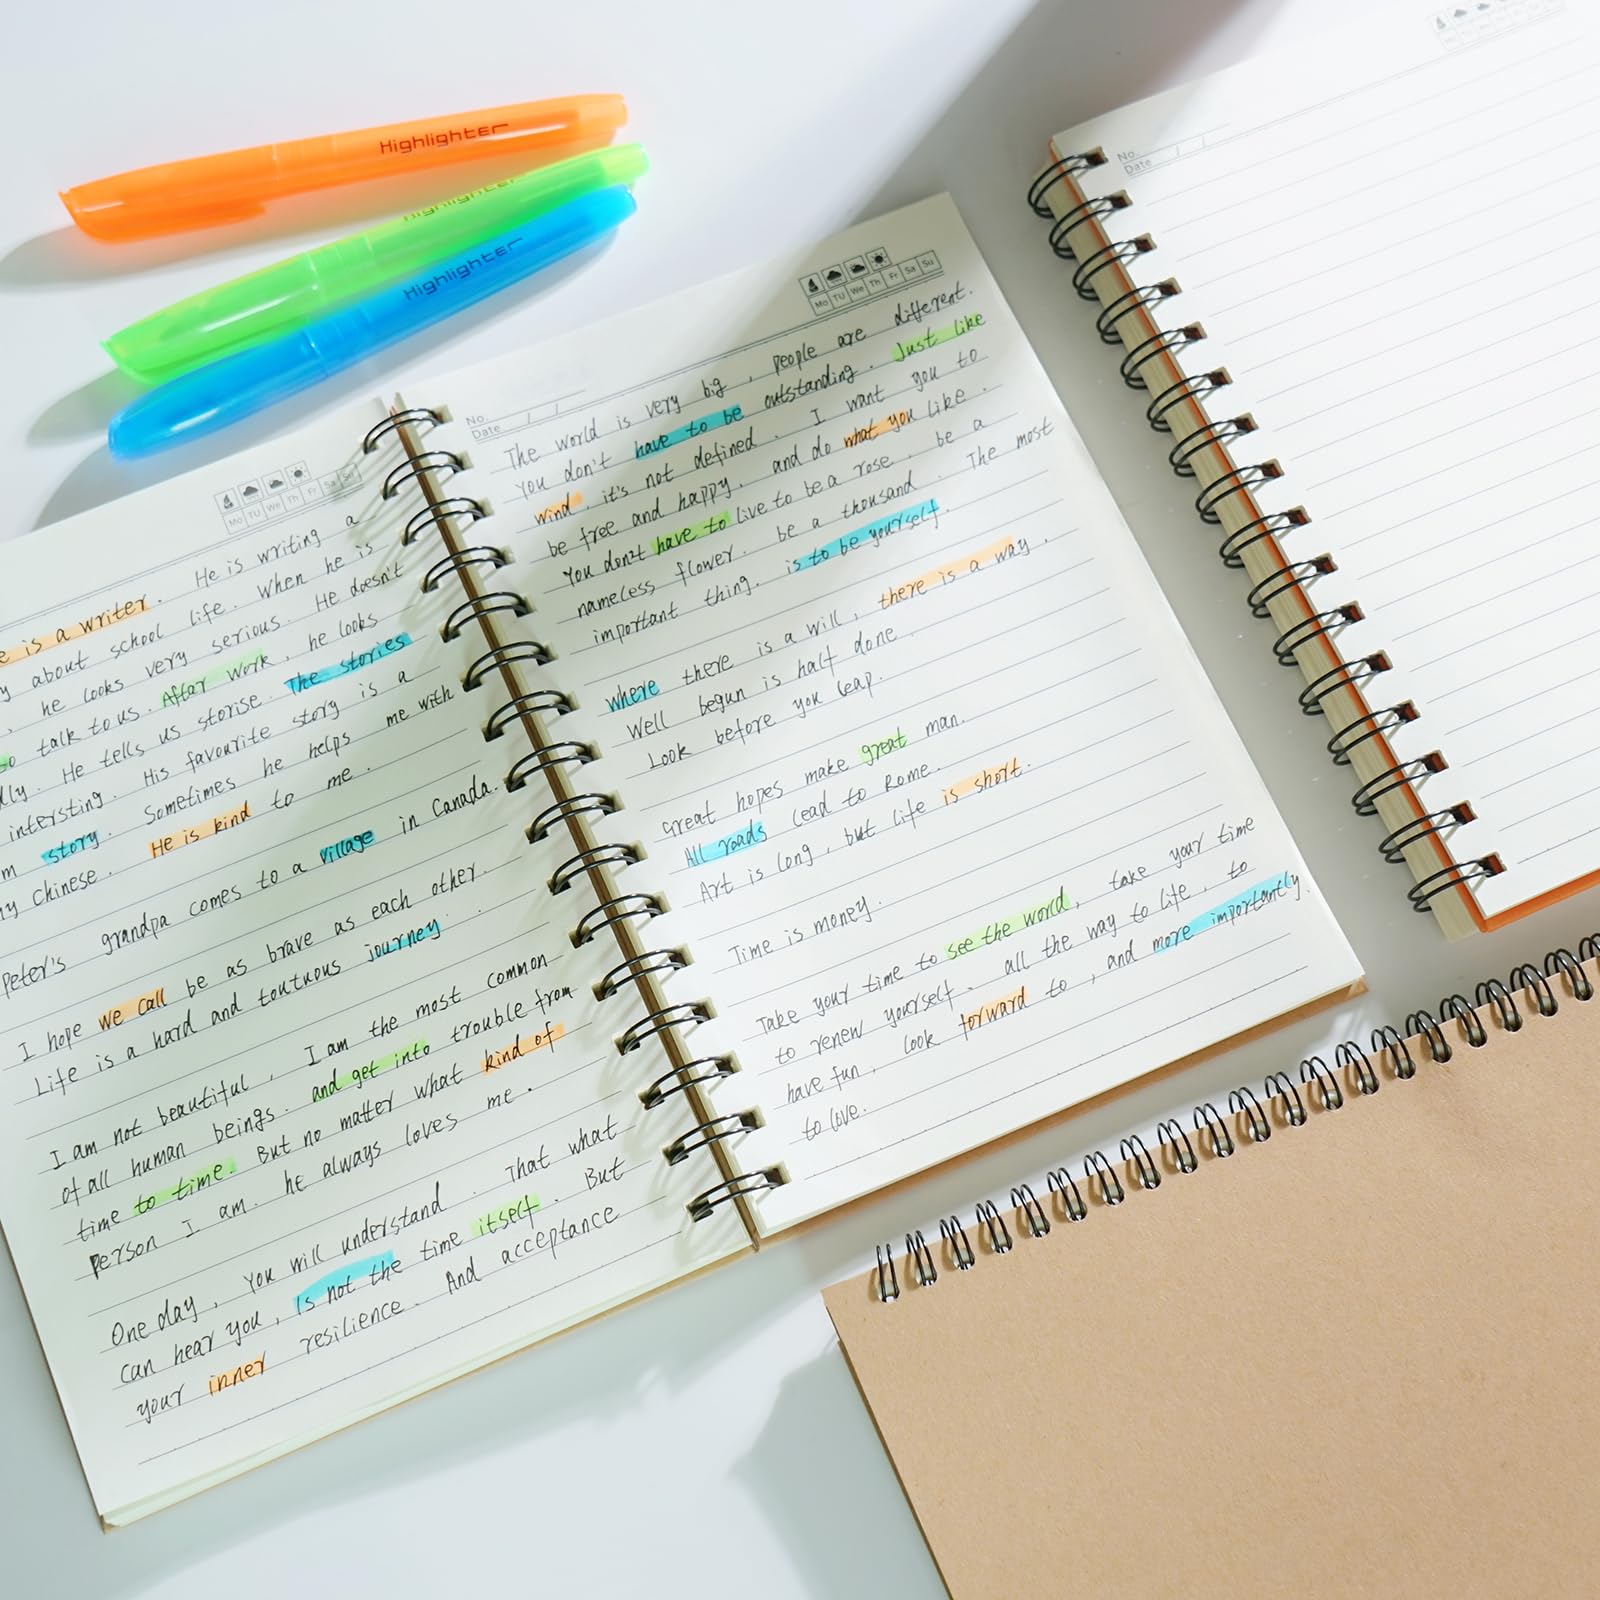 Highlighter
Highlighter
Highlighter
Mo TU We Th Fr Sa Su
is a writer. He is writing a
about school life. When he is
, he looks very serious. He doesn't
talk to us. After work, he looks
. He tells us storise. The stories
intersting. His favourite story is a
story. Sometimes he helps me with
Chinese. He is kind to me.
Peter's grandpa comes to a village in Canada.
I hope we call be as brave as each other.
Life is a hard and toutuous journey.
I am not beautiful, I am the most common
of all human beings. and get into trouble from
time to time. But no matter what kind of
person I am. he always loves me.
One day, you will understand. That what
can hear you, is not the time itself. But
your inner resilience. And acceptance
No.
Date / /
Mo TU We Th Fr Sa Su
The world is very big, people are different.
You don't have to be outstanding. Just like
wind, it's not defined. I want you to
be free and happy, and do what you like.
You don't have to live to be a rose. be a
nameless flower. be a thousand. The most
important thing. is to be yourself.
where there is a will, there is a way.
Well begun is half done.
Look before you leap.
Great hopes make great man.
All roads lead to Rome.
Art is long, but life is short.
Time is money.
Take your time to see the world, take your time
to renew yourself. all the way to life, to
have fun, look forward to, and more importantly.
to love.
No.
Date / /